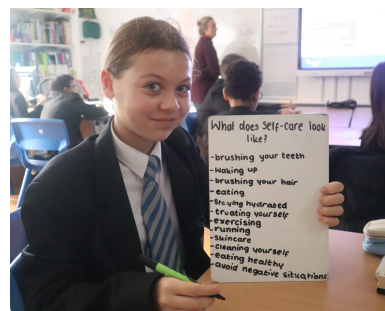 What does Self-care look
like?
-brushing your teeth
-waking up
-brushing your hair
-eating
-staying hydrated
-treating yourself
-exercising
-running
-skincare
-cleaning yourself
-eating healthy
-avoid negative situations